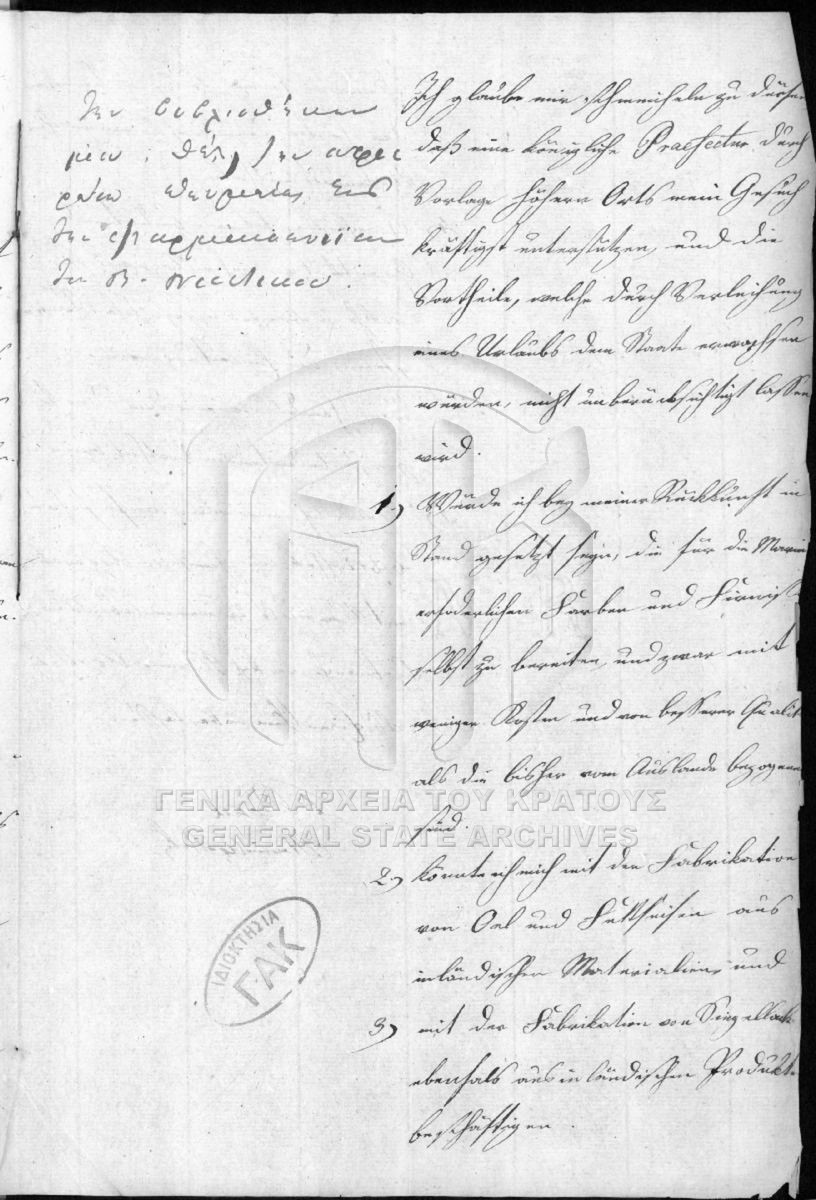 Ich glaube mir schmeicheln zu dürfen
daß eine königliche Praefectur durch
Vorlage höhern Orts mein Gesuch
kräftigst unterstützen, und die
Vortheile, welche durch Verleihung
eines Urlaubs dem Staate erwachsen
würden, nicht unberücksichtigt lassen
wird.
1) Würde ich bey meiner Rückkunft in
Stand gesetzt seyn, die für die Marine
erfoderlichen Farben und Firniss
selbst zu bereiten, und zwar mit
weniger Kosten und von besserer Qualit
als die bisher vom Auslande bezogenen
sind.
2) könnte ich mich mit der Fabrikation
von Oel und Fettseifen aus
inländischen Materialien, und
3) mit der Fabrikation von Siegellack
ebenfals aus inländischen Produkte
beschäftigen.
ΓΕΝΙΚΑ ΑΡΧΕΙΑ ΤΟΥ ΚΡΑΤΟΥΣ
GENERAL STATE ARCHIVES
ΙΔΙΟΚΤΗΣΙΑ
ΓΑΚ